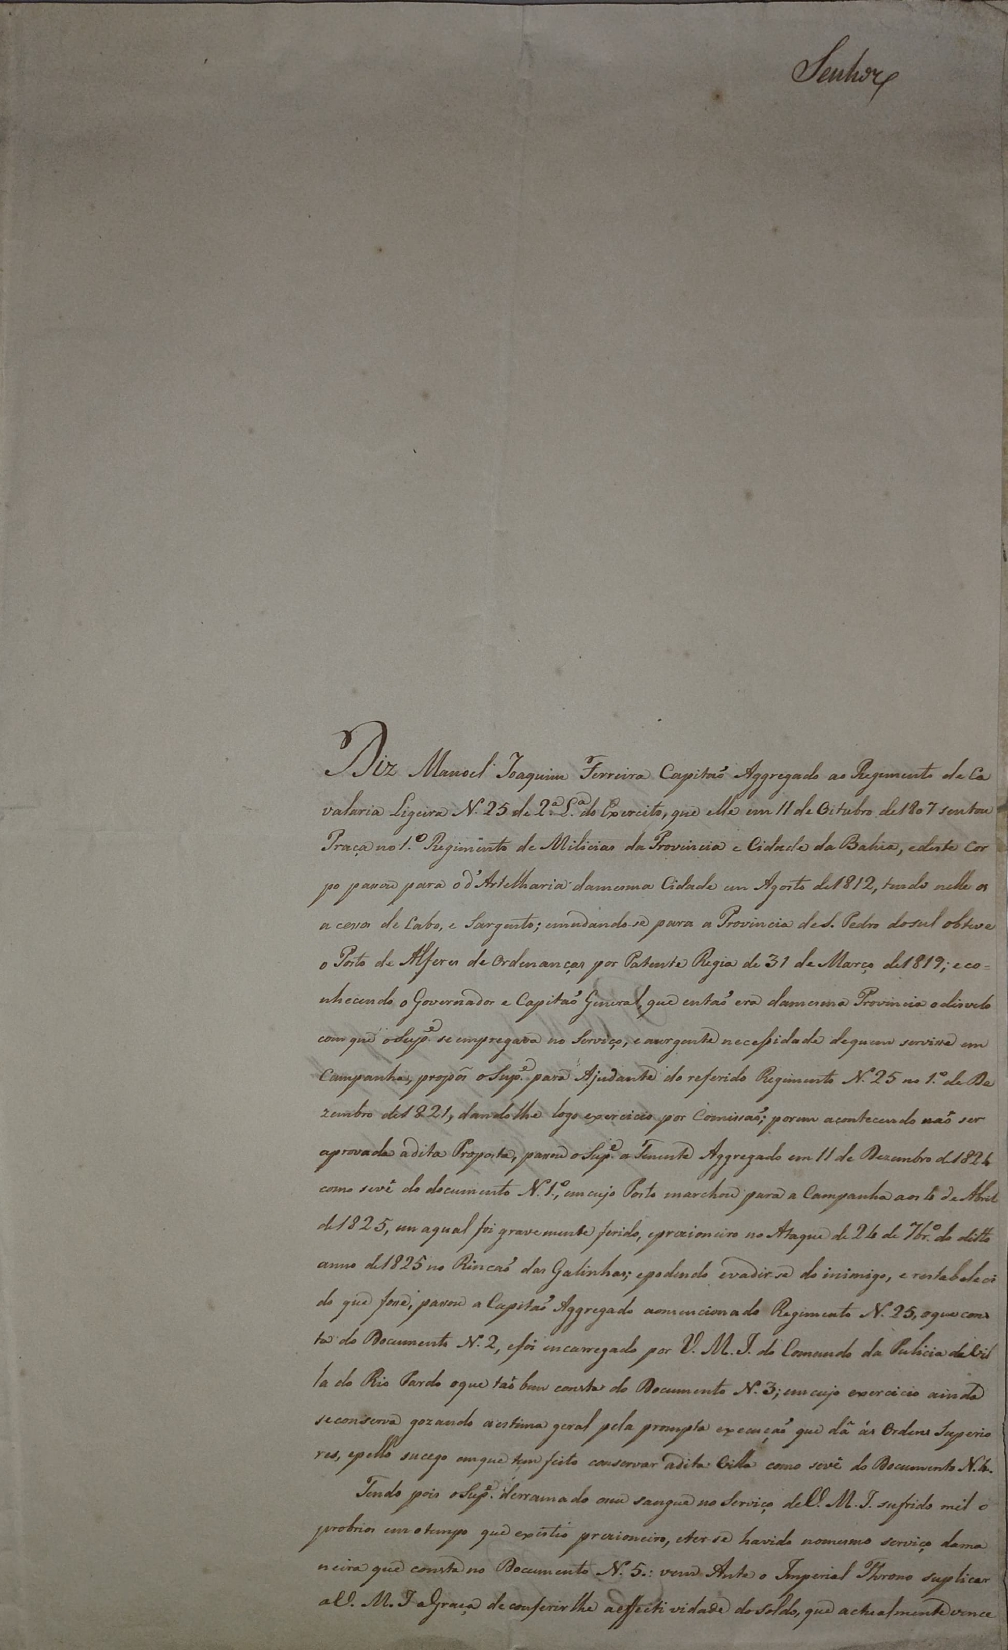 Senhor
Diz Manoel Joaquim Ferreira Capitaõ Aggregado ao Regimento de Ca
valaria Ligeira N. 25 de 2.ª L.ª do Exercito, que elle em 11 de Oitubro de 1807 sentou
Praça no 1.º Regimento de Milicias da Provincia e Cidade da Bahia, e deste Cor
po passou para o d'Artelharia da mesma Cidade em Agosto de 1812, tendo nelle os
acessos de Cabo, e Sargento; e mudando-se para a Provincia de S. Pedro do Sul obteve
o Posto de Alferes de Ordenanças por Patente Regia de 31 de Março de 1819; e co=
nhecendo o Governador e Capitaõ General, que entaõ era da mesma Provincia o disvelo
com que o Sup.e se empregava no Serviço, e a urgente necessidade de quem servisse em
Campanha, propôs o Sup.e para Ajudante do referido Regimento N. 25 no 1.º de De
zembro de 1821, dando lhe logo exercicio por Comissaõ; porem acontecendo naõ ser
aprovada a dita Proposta, passou o Sup.e a Tenente Aggregado em 11 de Dezembro de 1824
como se vê do documento N. 1.º, em cujo Posto marchou para a Campanha aos 4 de Abril
de 1825, em a qual foi gravemente ferido, e prezioneiro no Ataque de 24 de 7br.º do ditto
anno de 1825 no Rincaõ das Galinhas; e podendo evadir-se do inimigo, e restabeleci
do que fosse, passou a Capitaõ Aggregado ao mencionado Regimento N. 25, o que cons
ta do Documento N. 2, e foi encarregado por V. M. I. do Comando da Pulicia da Vil
la do Rio Pardo o que taõ bem consta do Documento N. 3; em cujo exercicio ainda
se conserva gozando a estima geral pela prompta execuçaõ que dá ás Ordens Superio
res, e pello sucego em que tem feito conservar a dita Villa como se vê do Documento N. 4.
Tendo pois o Sup.e derramado o seu sangue no Serviço de V. M. I. sufrido mil o
probrios em o tempo que existio prezioneiro, e ter-se havido no mesmo serviço da ma
neira que consta no Documento N. 5.: vem Ante o Imperial Throno suplicar
a V. M. I. a Graça de conferir lhe a effectividade do soldo, que actualmente vence